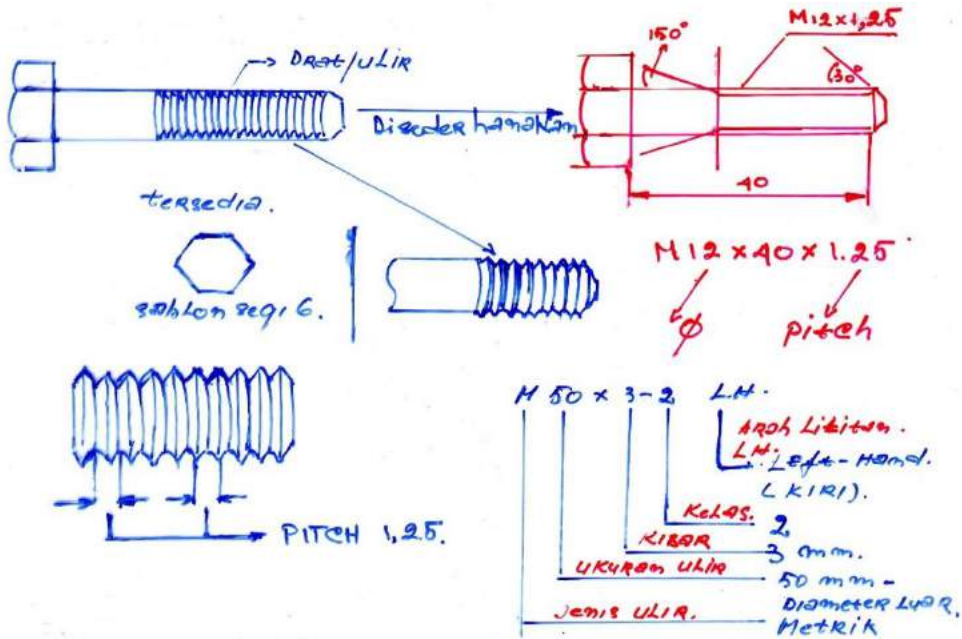 DRat/ULIR
Disederhanakan
150°
M12x1,25
30°
40
tersedia.
sablon segi 6.
M12 x 40 x 1.25
Ø pitch
PITCH 1,25.
M 50 x 3-2 L.H.
ARah Lilitan.
LH.
: Left-Hand.
(KIRI).
Kelas. 2
KISAR 3 mm.
UKURan ULIR 50 mm -
Diameter Luar.
Jenis ULIR. Metrik